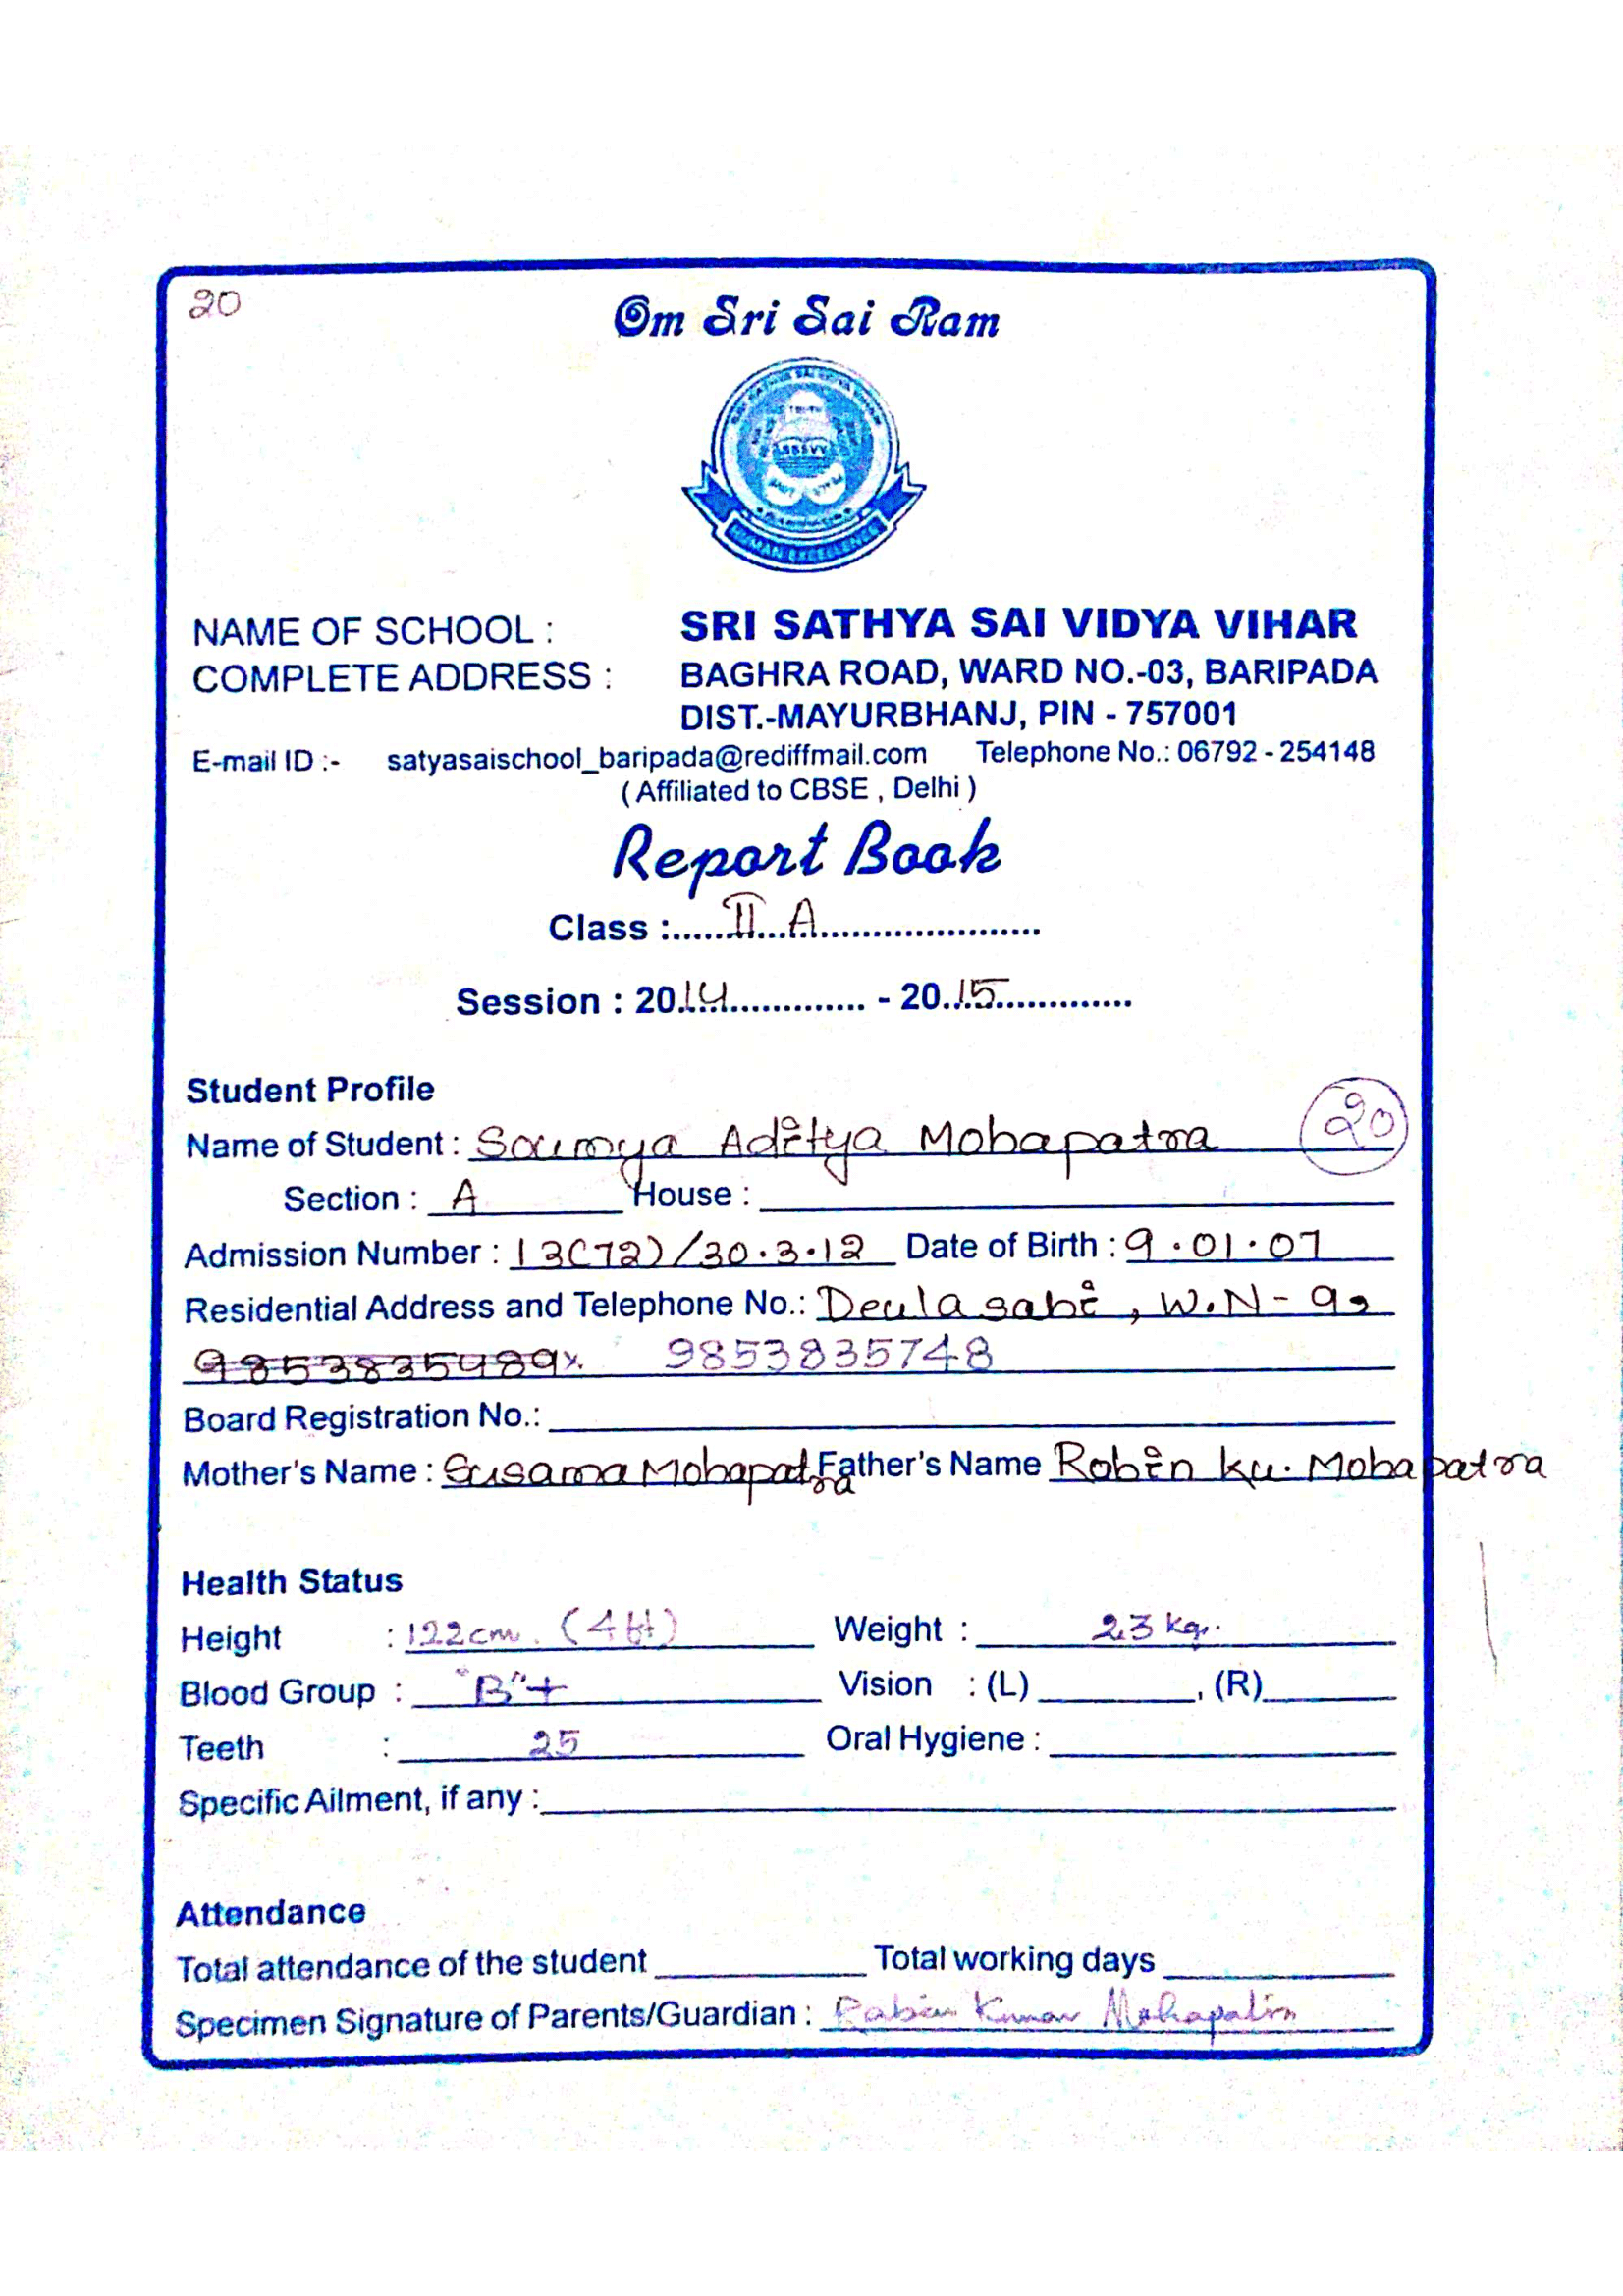 20
Om Sri Sai Ram
SSSVV
HUMAN EXCELLENCE
NAME OF SCHOOL : SRI SATHYA SAI VIDYA VIHAR
COMPLETE ADDRESS : BAGHRA ROAD, WARD NO.-03, BARIPADA
DIST.-MAYURBHANJ, PIN - 757001
E-mail ID :- satyasaischool_baripada@rediffmail.com Telephone No.: 06792 - 254148
( Affiliated to CBSE , Delhi )
Report Book
Class :......II...A.....................
Session : 2014............. - 20..15.............
Student Profile
Name of Student : Soumya Aditya Mohapatra 20
Section : A House :
Admission Number : 13(72)/30.3.12 Date of Birth : 9.01.07
Residential Address and Telephone No.: Deulasahi, W.N - 9,
9853835489 9853835748
Board Registration No.:
Mother's Name : Susama Mohapatra Father's Name Robin ku. Mohapatra
Health Status
Height : 122cm. (4ft) Weight : 23 kg.
Blood Group : "B"+ Vision : (L) , (R)
Teeth : 25 Oral Hygiene :
Specific Ailment, if any :
Attendance
Total attendance of the student Total working days
Specimen Signature of Parents/Guardian : Rabin Kumar Mohapatra